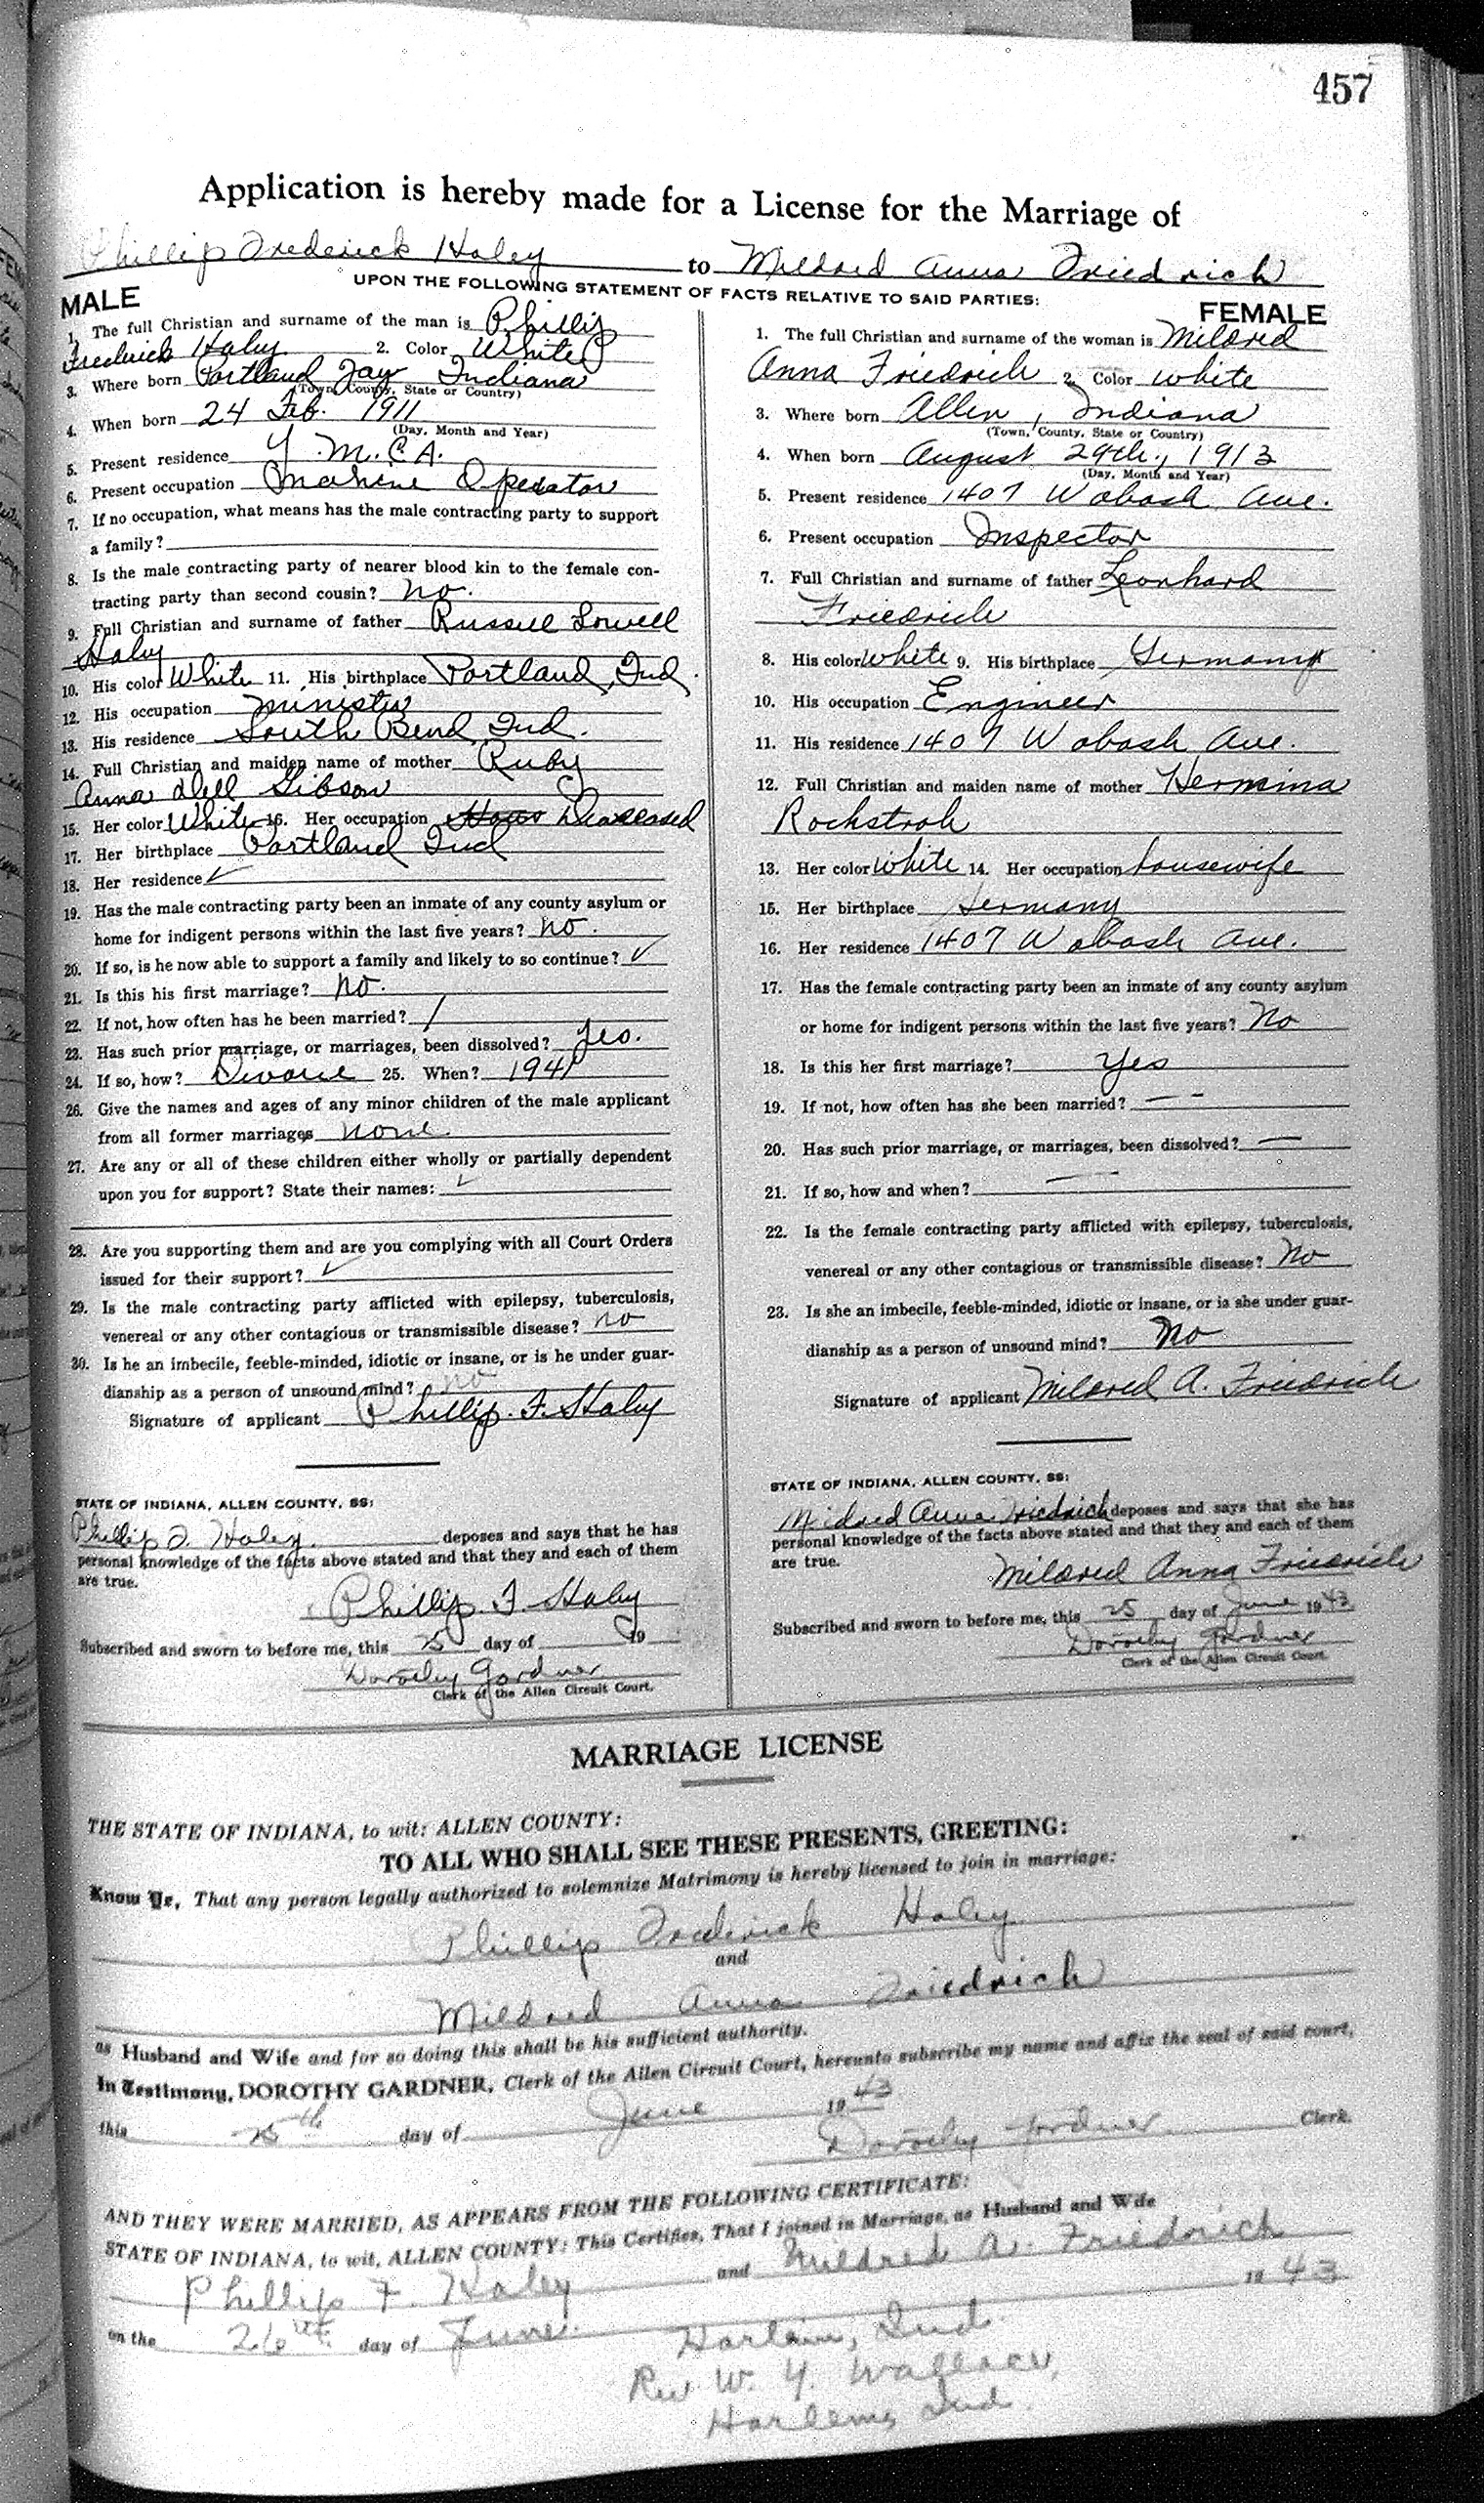 457
Application is hereby made for a License for the Marriage of
Phillip Frederick Haley to Mildred Anna Friedrich
UPON THE FOLLOWING STATEMENT OF FACTS RELATIVE TO SAID PARTIES:
MALE
1. The full Christian and surname of the man is Phillip
Frederick Haley 2. Color White
3. Where born Portland Jay Indiana
(Town, County, State or Country)
4. When born 24 Feb. 1911
(Day, Month and Year)
5. Present residence Y.M.C.A.
6. Present occupation Mahine Operator
7. If no occupation, what means has the male contracting party to support
a family?
8. Is the male contracting party of nearer blood kin to the female con-
tracting party than second cousin? no.
9. Full Christian and surname of father Russell Lowell
Haley
10. His color White 11. His birthplace Portland, Ind.
12. His occupation Minister
13. His residence South Bend, Ind.
14. Full Christian and maiden name of mother Ruby
Anna Dell Gibson
15. Her color White 16. Her occupation Deceased
17. Her birthplace Portland Ind
18. Her residence ✓
19. Has the male contracting party been an inmate of any county asylum or
home for indigent persons within the last five years? no.
20. If so, is he now able to support a family and likely to so continue? ✓
21. Is this his first marriage? no.
22. If not, how often has he been married? 1
23. Has such prior marriage, or marriages, been dissolved? yes.
24. If so, how? Divorce 25. When? 1941
26. Give the names and ages of any minor children of the male applicant
from all former marriages none
27. Are any or all of these children either wholly or partially dependent
upon you for support? State their names: ✓
28. Are you supporting them and are you complying with all Court Orders
issued for their support? ✓
29. Is the male contracting party afflicted with epilepsy, tuberculosis,
venereal or any other contagious or transmissible disease? no
30. Is he an imbecile, feeble-minded, idiotic or insane, or is he under guar-
dianship as a person of unsound mind? no
Signature of applicant Phillip. F. Haley
STATE OF INDIANA, ALLEN COUNTY, SS:
Phillip F. Haley. deposes and says that he has
personal knowledge of the facts above stated and that they and each of them
are true.
Phillip. F. Haley
Subscribed and sworn to before me, this 25 day of 19
Dorothy Gardner
Clerk of the Allen Circuit Court.
FEMALE
1. The full Christian and surname of the woman is Mildred
Anna Friedrich 2. Color white
3. Where born Allen, Indiana
(Town, County, State or Country)
4. When born August 29th, 1913
(Day, Month and Year)
5. Present residence 1407 Wabash Ave.
6. Present occupation Inspector
7. Full Christian and surname of father Leonhard
Friedrich
8. His color white 9. His birthplace Germany
10. His occupation Engineer
11. His residence 1407 Wabash Ave.
12. Full Christian and maiden name of mother Hermina
Rockstroh
13. Her color white 14. Her occupation housewife
15. Her birthplace Germany
16. Her residence 1407 Wabash Ave.
17. Has the female contracting party been an inmate of any county asylum
or home for indigent persons within the last five years? No
18. Is this her first marriage? yes
19. If not, how often has she been married? — -
20. Has such prior marriage, or marriages, been dissolved? —
21. If so, how and when? — —
22. Is the female contracting party afflicted with epilepsy, tuberculosis,
venereal or any other contagious or transmissible disease? No
23. Is she an imbecile, feeble-minded, idiotic or insane, or is she under guar-
dianship as a person of unsound mind? No
Signature of applicant Mildred A. Friedrich
STATE OF INDIANA, ALLEN COUNTY, SS:
Midred Anna Friedrich deposes and says that she has
personal knowledge of the facts above stated and that they and each of them
are true.
Mildred Anna Friedrich
Subscribed and sworn to before me, this 25 day of June 1943
Dorothy Gardner
Clerk of the Allen Circuit Court.
MARRIAGE LICENSE
THE STATE OF INDIANA, to wit: ALLEN COUNTY:
TO ALL WHO SHALL SEE THESE PRESENTS, GREETING:
Know Ye, That any person legally authorized to solemnize Matrimony is hereby licensed to join in marriage:
Phillip Frederick Haley
and
Mildred Anna Friedrich
as Husband and Wife and for so doing this shall be his sufficient authority.
In Testimony, DOROTHY GARDNER, Clerk of the Allen Circuit Court, hereunto subscribe my name and affix the seal of said court,
this 25th day of June 1943
Dorothy Gardner Clerk.
AND THEY WERE MARRIED, AS APPEARS FROM THE FOLLOWING CERTIFICATE:
STATE OF INDIANA, to wit, ALLEN COUNTY: This Certifies, That I joined in Marriage, as Husband and Wife
Phillip F. Haley and Mildred A. Friedrich
on the 26th day of June. 1943
Harlan, Ind
Rev W. Y. Wallace,
Harlem, Ind.